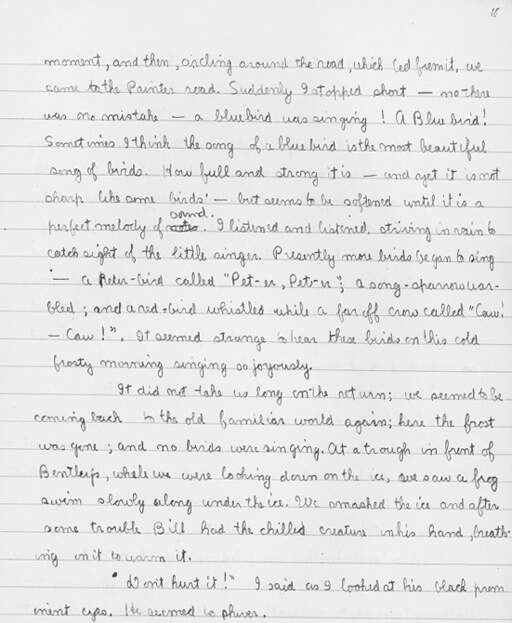 18
moment, and then, circling around the road, which led from it, we
came to the Painter road. Suddenly I stopped short — no there
was no mistake — a bluebird was singing! A Blue bird!
Sometimes I think the song of a blue bird is the most beautiful
song of birds. How full and strong it is — and yet it is not
sharp like some birds' — but seems to be softened until it is a
sound.
perfect melody of notes. I listened and listened, striving in vain to
catch sight of the little singer. Presently more birds began to sing
— a Peter-bird called "Pet-er, Pet-er"; a song-sparrow war-
bled; and a red-bird whistled while a far off crow called "Caw!
— Caw!". It seemed strange to hear these birds on this cold
frosty morning singing so joyously.
It did not take us long on the return; we seemed to be
coming back to the old familiar world again; here the frost
was gone; and no birds were singing. At a trough in front of
while we were looking down on the ice, we saw a frog
swim slowly along under the ice. We smashed the ice and after
some trouble Bill had the chilled creature in his hand, breath-
ing on it to warm it.
"Don't hurt it!" I said as I looked at his black prom
inent eyes. He seemed to